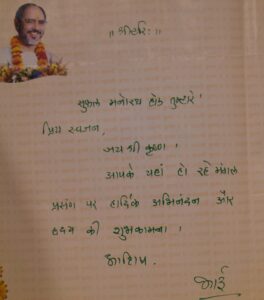 ॥ श्रीहरिः ॥
सुफल मनोरथ होउ तुम्हारे ।
प्रिय स्वजन,
जय श्री कृष्ण ।
आपके यहां हो रहे मंगल
प्रसंग पर हार्दिक अभिनंदन और
हृदय की शुभकामना ।
भाई